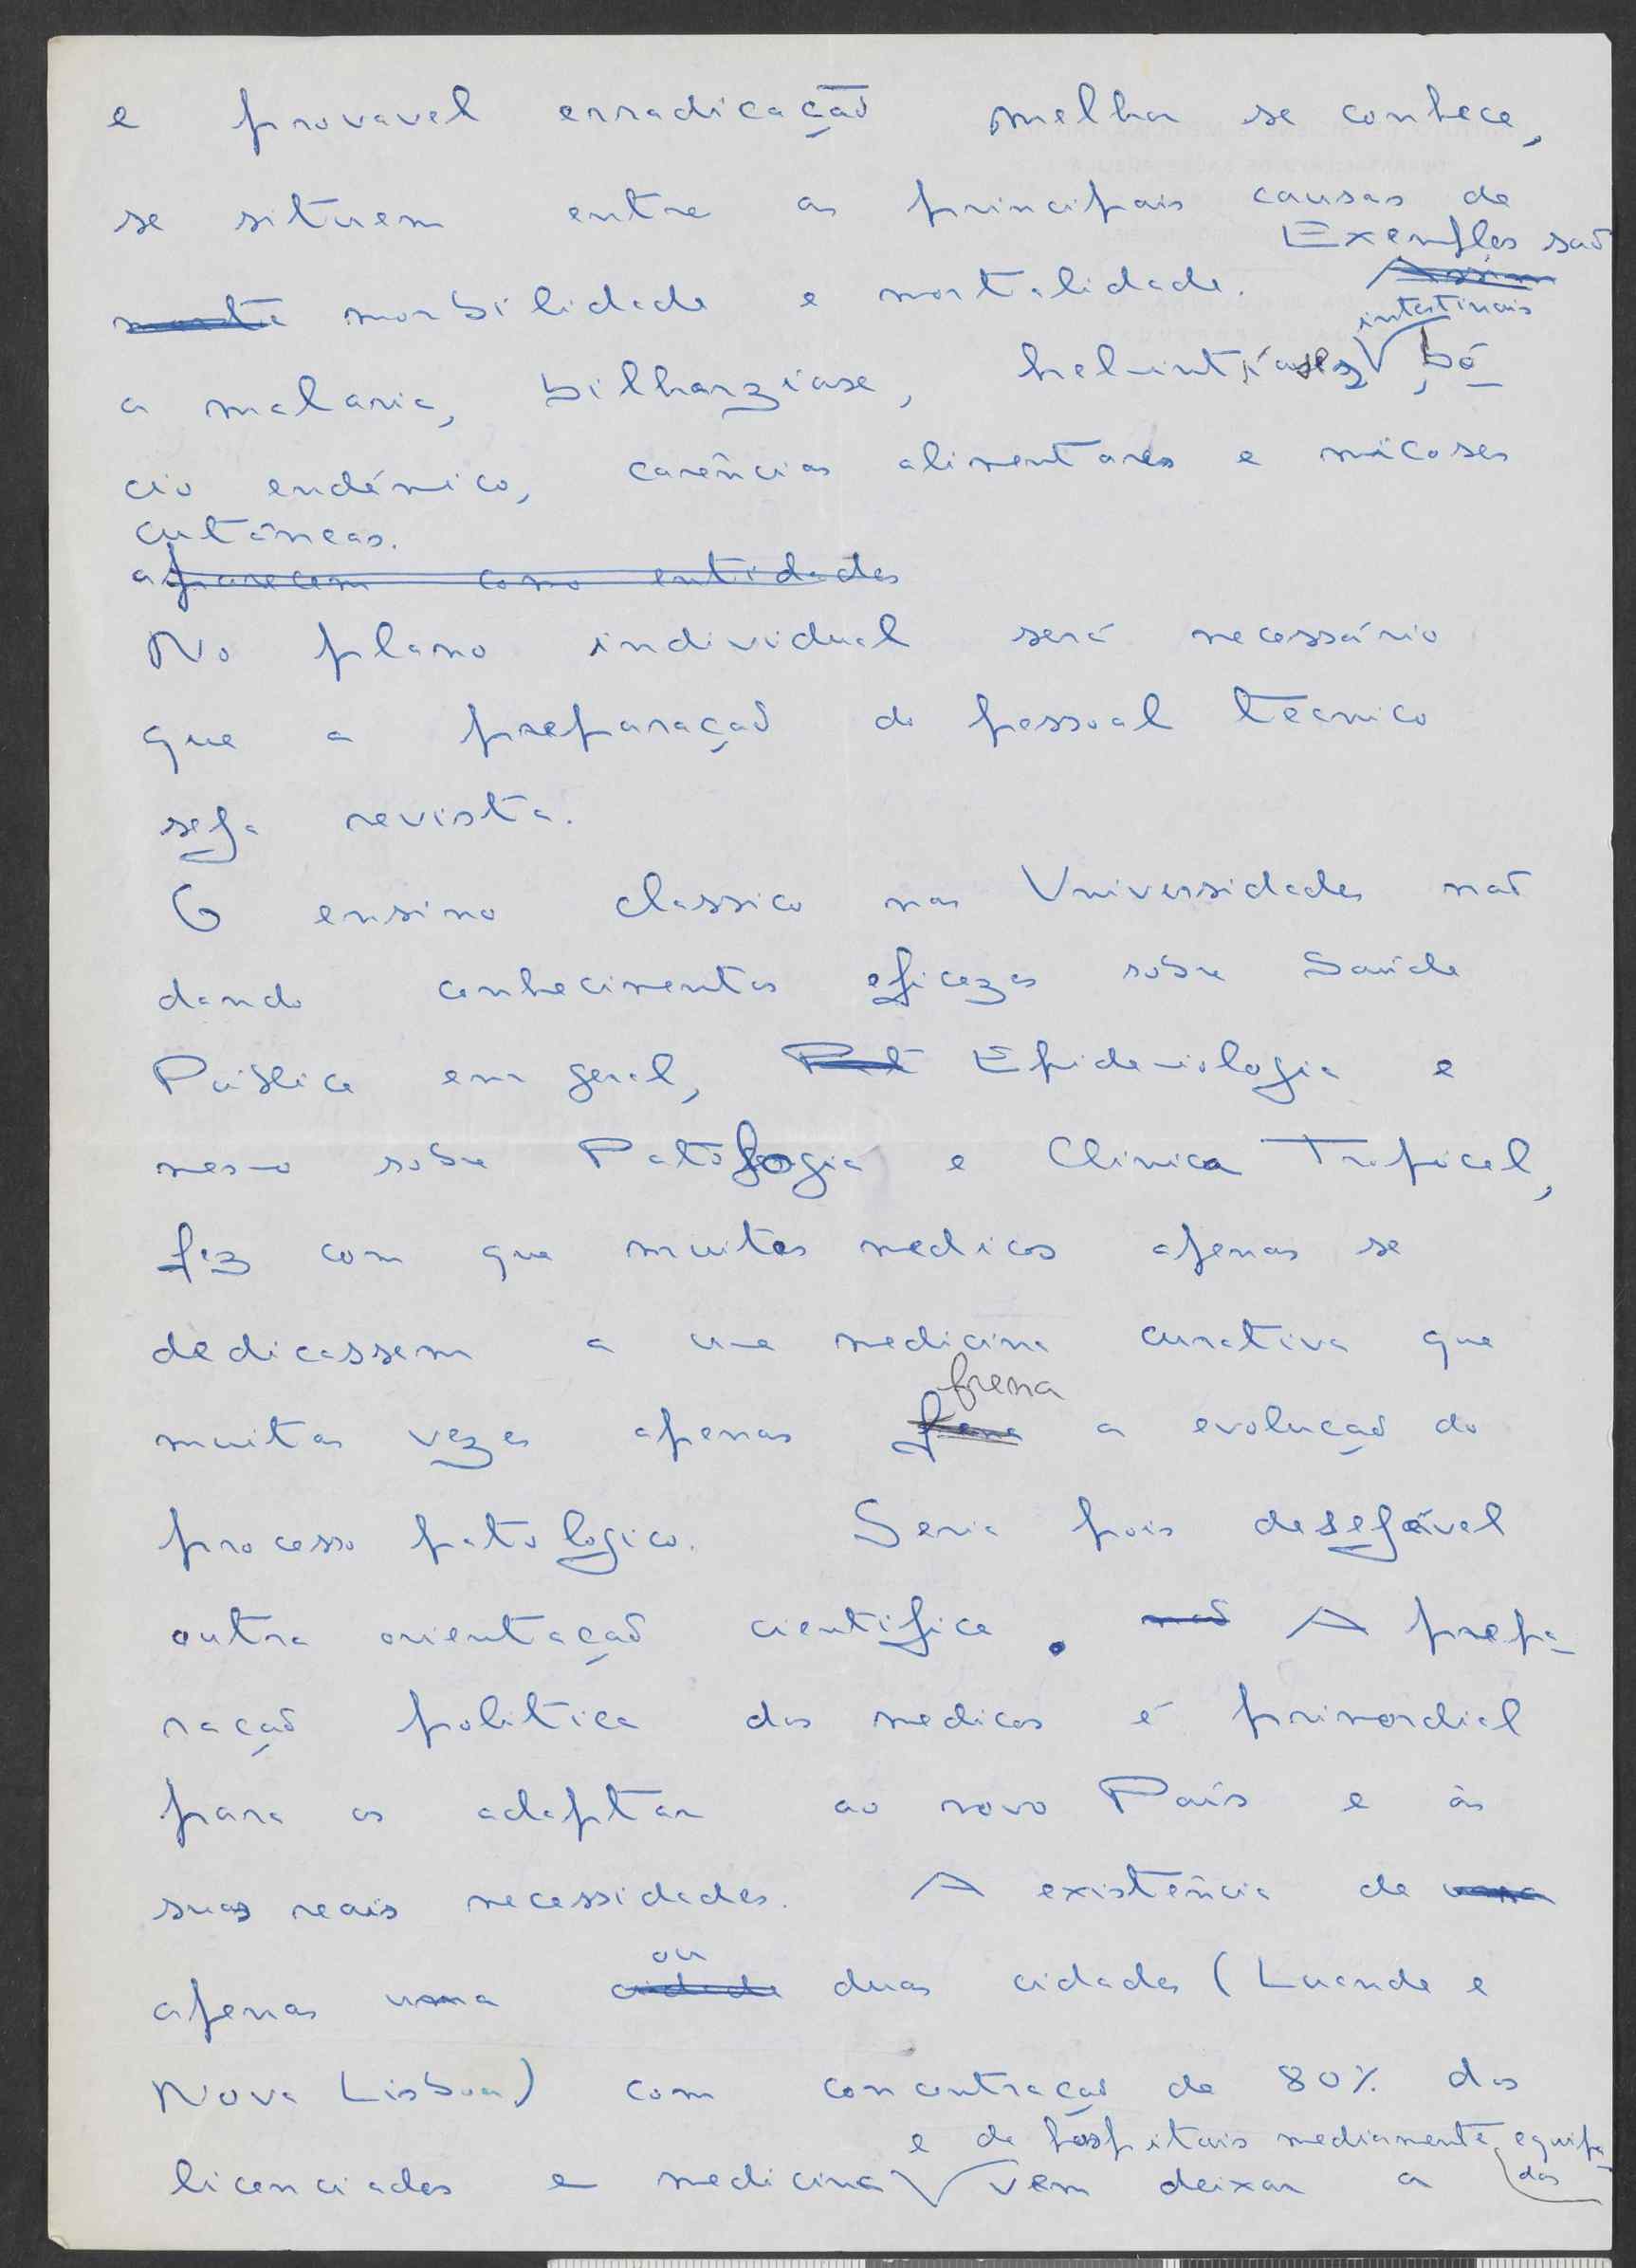 e provavel erradicação melhor se conhece,
se situem entre as principais causas de
Exemplos saõ
morte morbilidade e mortalidade. Assim
intestinais
a malaria, bilharziase, helmintíases, bó-
cio endémico, carências alimentares e micoses
cutâneas.
aparecem como entidades
No plano individual será necessário
que a preparaçaõ do pessoal tecnico
seja revista.
O ensino classico nas Universidades naõ
dando conhecimentos eficazes sobre Saúde
Pública em geral, Pat Epidemiologia e
mesmo sobre Patologia e Clinica Tropical,
fez com que muitos medicos apenas se
dedicassem a uma medicina curativa que
frena
muitas vezes apenas a evoluçaõ do
processo patologico. Seria pois desejável
outra orientaçaõ cientifica. A prepa-
raçaõ politica dos medicos é primordial
para os adaptar ao novo País e às
suas reais necessidades. A existência de uma
ou
apenas uma cidade duas cidades (Luanda e
Nova Lisboa) com concentraçaõ de 80% dos
e de hospitais mediamente equipa-
dos
licenciados em medicina vem deixar a